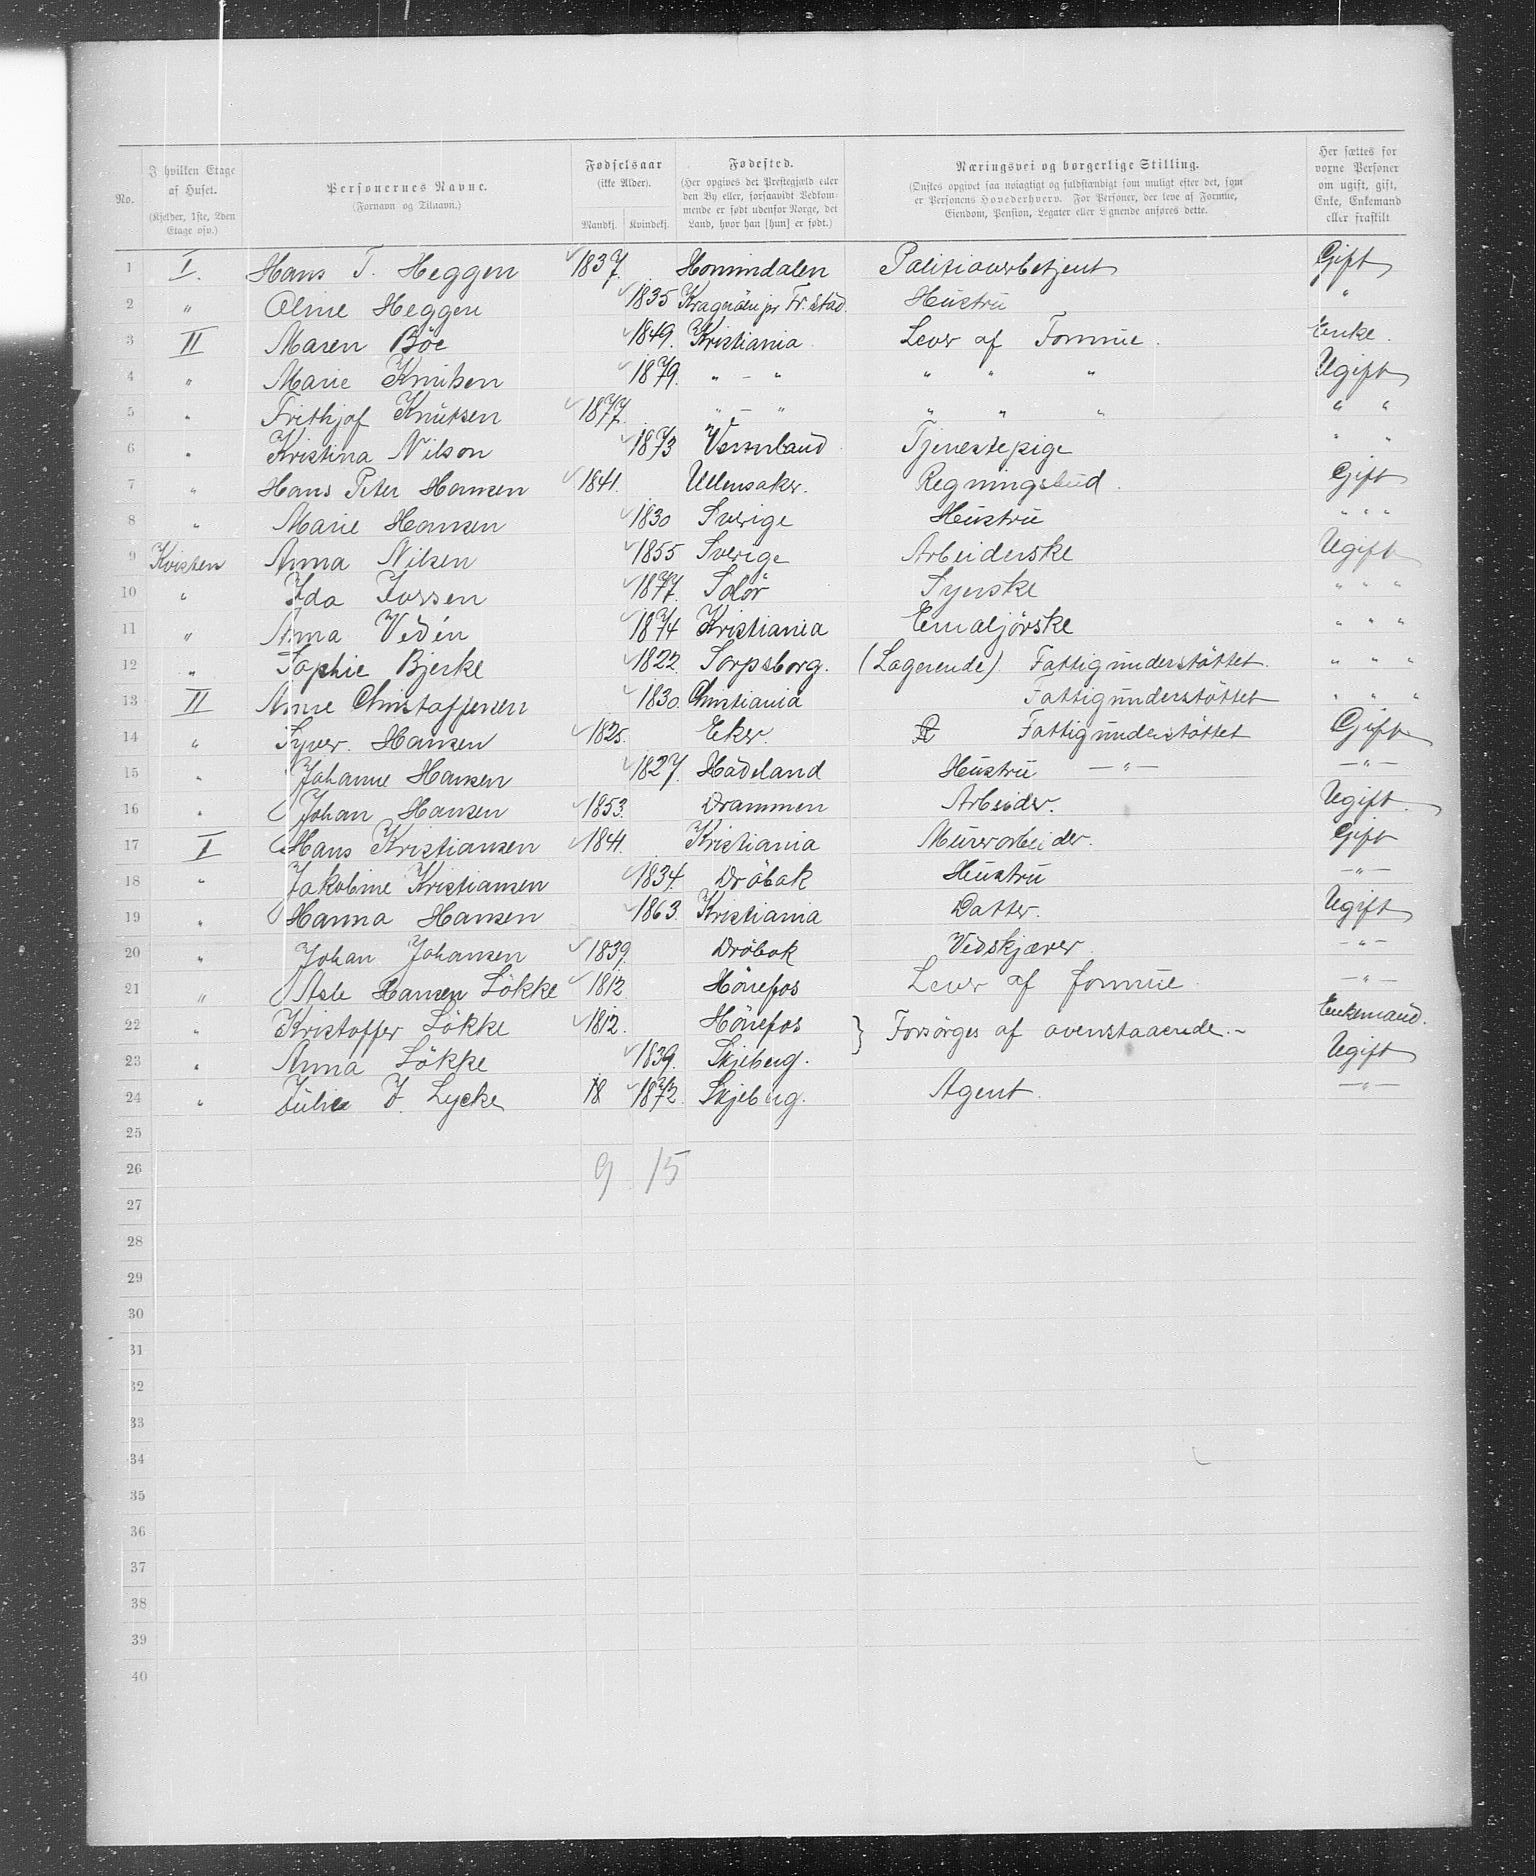 No. | I hvilken Etage af Huset. (Kjelder, 1ste, 2den Etage osv.) | Personernes Navne. (Fornavn og Tilnavn.) | Fødselsaar (ikke Alder). Mandkj. Kvindekj. | Fødested. (Her opgives det Prestegjæld eller den By eller, forsaavidt Vedkommende er født udenfor Norge, det Land, hvor han [hun] er født.) | Næringsvei og borgerlige Stilling. (Ønskes opgivet saa nøiagtigt og fuldstændigt som muligt efter det, som er Personens Hovederhverv. For Personer, der leve af Formue, Eiendom, Pension, Legater eller Lignende anføres dette. | Her sættes for voxne Personer om ugift, gift, Enke, Enkemand eller fraskilt
1 I. Hans T. Heggen 1837. Hornindalen Politioverbetjent Gift
2 " Oline Heggen 1835 Fr.stad. Hustru "
3 II Maren Böe 1849. Kristiania Lever af Formue. Enke.
4 " Marie Knutsen 1879. " – " " " " Ugift
5 " Frithjof Knutsen 1877. " – " " " " " "
6 " Kristina Nilson 1873 Vermland Tjenestepige " "
7 " Hans Peter Hansen 1841. Ullensaker. Regningsbud. Gift
8 " Marie Hansen 1830 Sverige Hustru " " "
9 Kvisten Anna Nilsen 1855 Sverige Arbeiderske Ugift
10 " Ida Iversen 1877. Solör Syerske " " "
11 " Anna Vedén 1874 Kristiania Emaljörske " " "
12 " Sophie Bjerke 1822 Sarpsborg. (Logerende) Fattigunderstöttet. " " "
13 II Anne Christoffersen 1830. Christiania Fattigunderstöttet " " "
14 " Syver Hansen 1825. Eker. Fattigunderstöttet Gift
15 " Johanne Hansen 1827. Hadeland Hustru —"— —"—
16 " Johan Hansen 1853. Drammen Arbeider. Ugift.
17 I Hans Kristiansen 1841. Kristiania Murerarbeider. Gift
18 " Jakobine Kristiansen 1834. Dröbak Hustru —"—
19 " Hanna Hansen 1863. Kristiania Datter. Ugift
20 " Johan Johansen 1839. Dröbak Vedskjærer —"—
21 " Asle Hansen Lökke 1812 Hönefos Lever af formue —"—
22 " Kristoffer Lökke 1812. Hönefos } Forsörges af ovenstaaende.- Enkemand.
23 " Anna Lökke 1839. Skjeberg. Ugift
24 " Julie J. Lycke 18 1872. Skjeberg. Agent. —"—
25
26 9 15
27
28
29
30
31
32
33
34
35
36
37
38
39
40